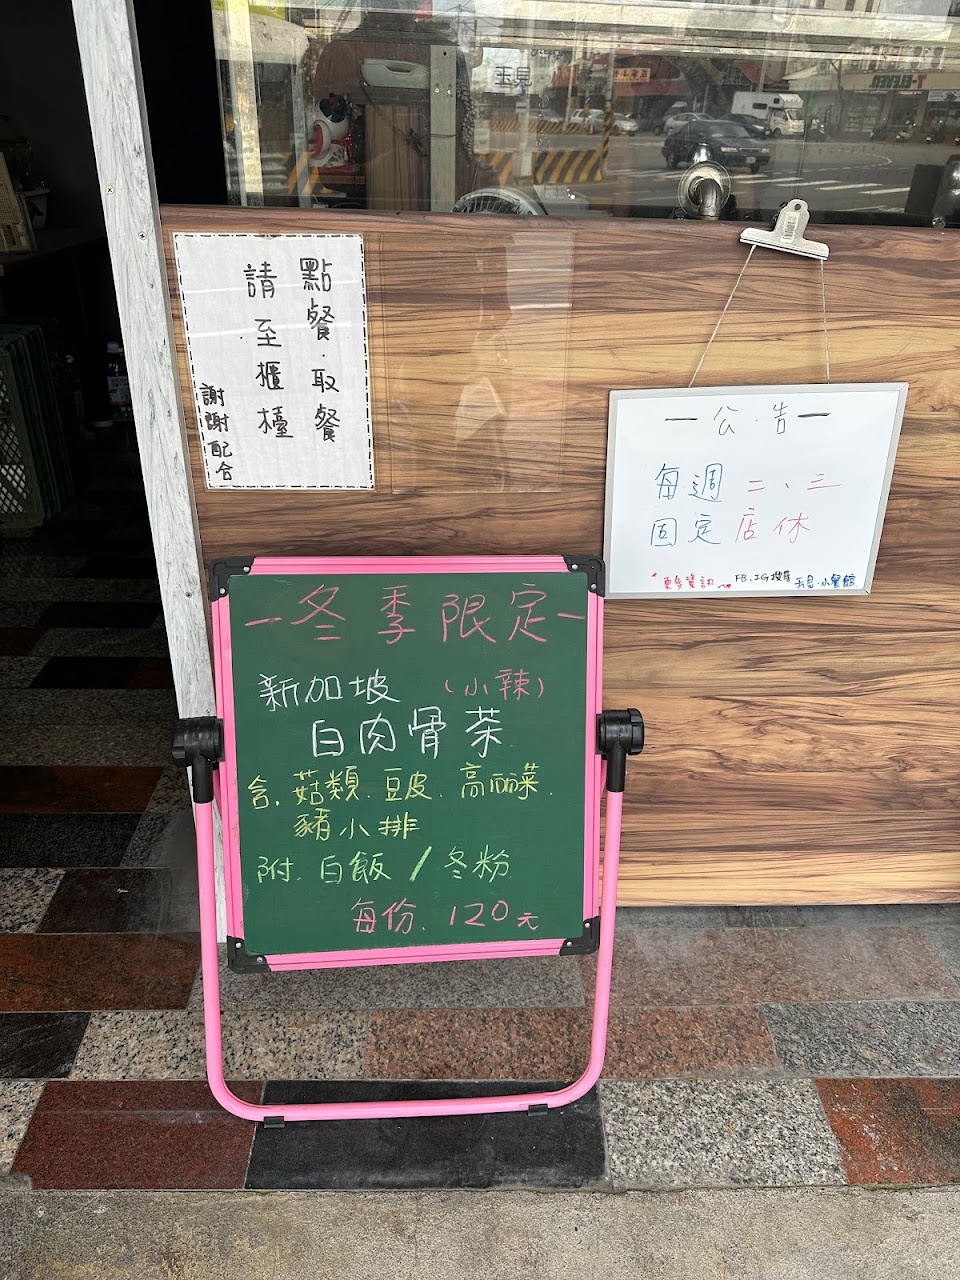 點餐.取餐
請至櫃檯
謝謝配合
一公告一
每週二、三
固定店休
*更多資訊
FB.IG搜尋
小餐館
-冬季限定-
新加坡(小辣)
白肉骨茶
含.菇類.豆皮.高麗菜.
豬小排
附.白飯/冬粉
每份.120元
7-ELEVEN